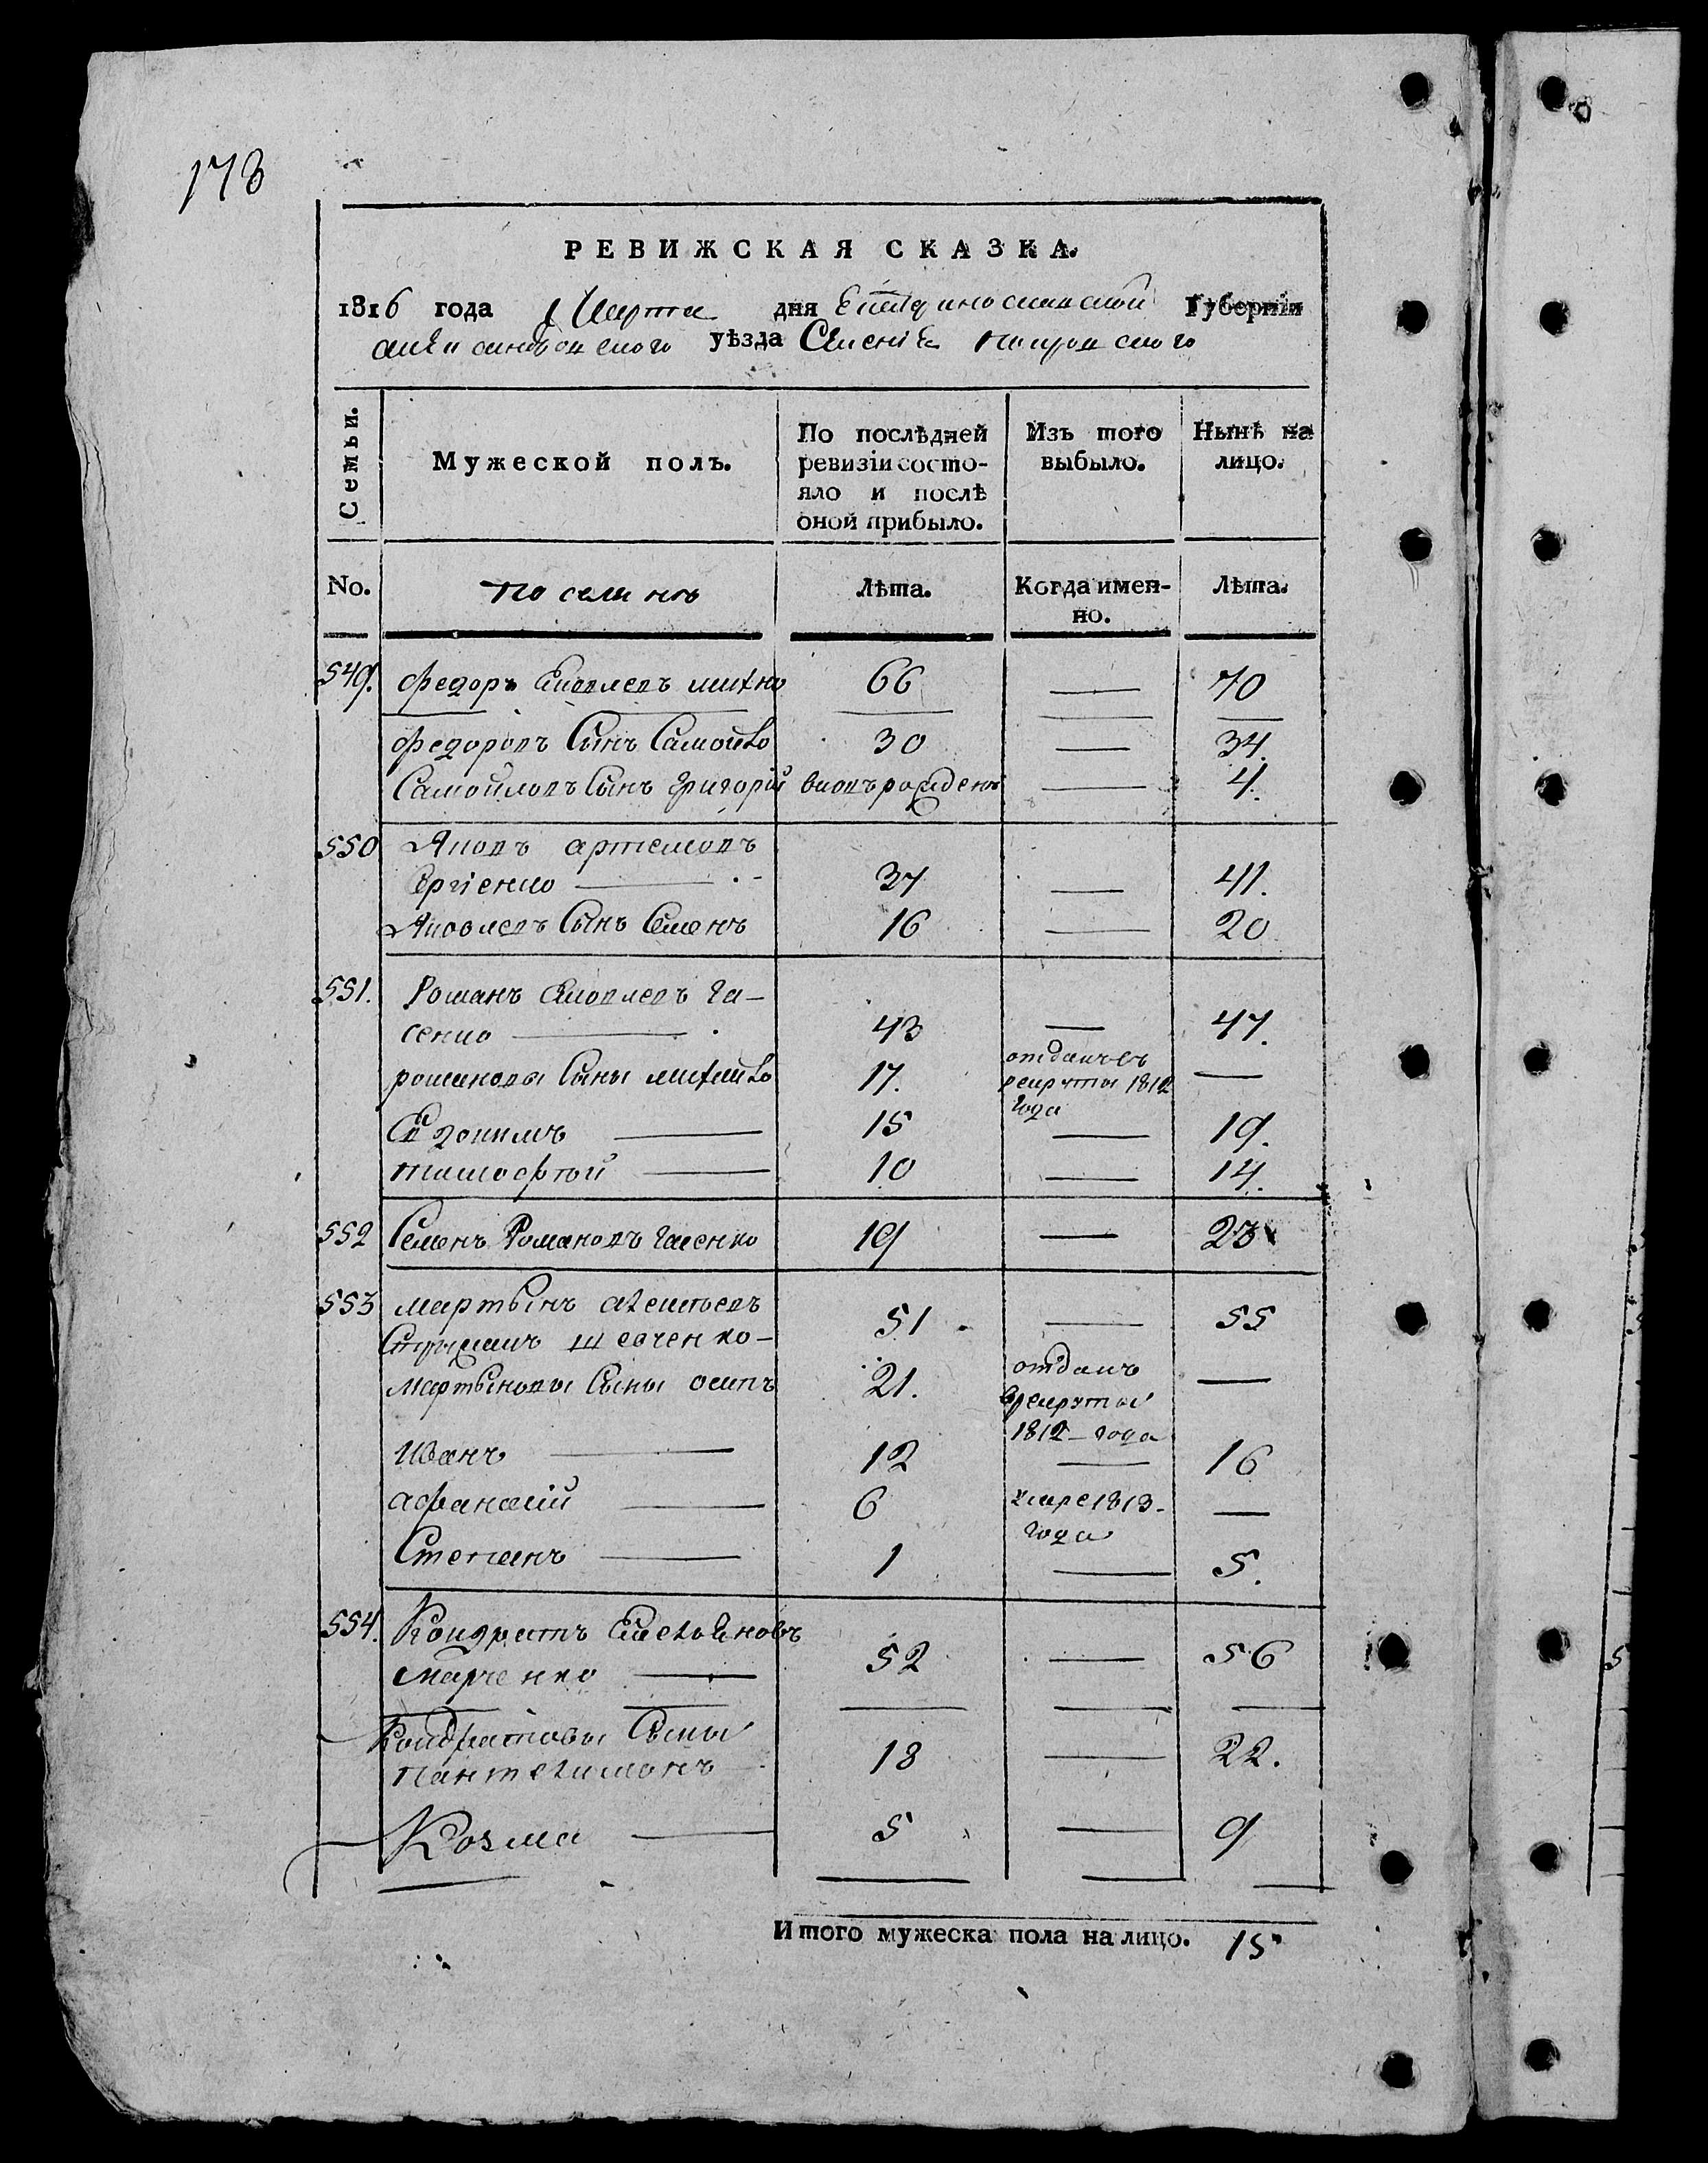 173
РЕВИЖСКАЯ СКАЗКА.
1816 года Марта дня Екатеринославской Губерніи
александровского уѣзда Селенія покровского
Семьи.
Мужеской полъ.
По послѣдней ревизіи состо-
яло и послѣ
оной прибыло.
Изъ того
выбыло.
Нынѣ на
лицо.
No.
поселянъ
Лѣта.
Когда имен-
но.
Лѣта.
549. федоръ Яковлевъ михно 66 — 70
федоровъ Сынъ Самойло 30 — 34.
Самойловъ Сынъ григорій вновърожденъ — 4.
550 Яковъ артемовъ
Сргіенко — 37 — 41.
Яковлевъ Сынъ Семенъ 16 — 20
551. Романъ Яковлевъ Га-
сенко — 43 — 47.
романовы Сыны михайло 17. отданъ въ рекруты 1812 года —
Евдокимъ — 15 — 19.
тимофтей — 10 — 14.
552 Семенъ Романовъ Гасенко 19 — 23
553 мартынъ алексеевъ
шевченко — 51 — 55
Мартыновы Сыны осипъ 21. отданъ
в рекруты
1812 — года —
Иванъ — 12 — 16
афанасій — 6 умре 1813 —
года —
Степанъ — 1 — 5.
554. Кондратъ Емельяновъ
Марченко — 52 — 56
Кондратовы Сыны
пантелимонъ 18 — 22.
Козма — 5 — 9
Итого мужеска пола на лицо. 15